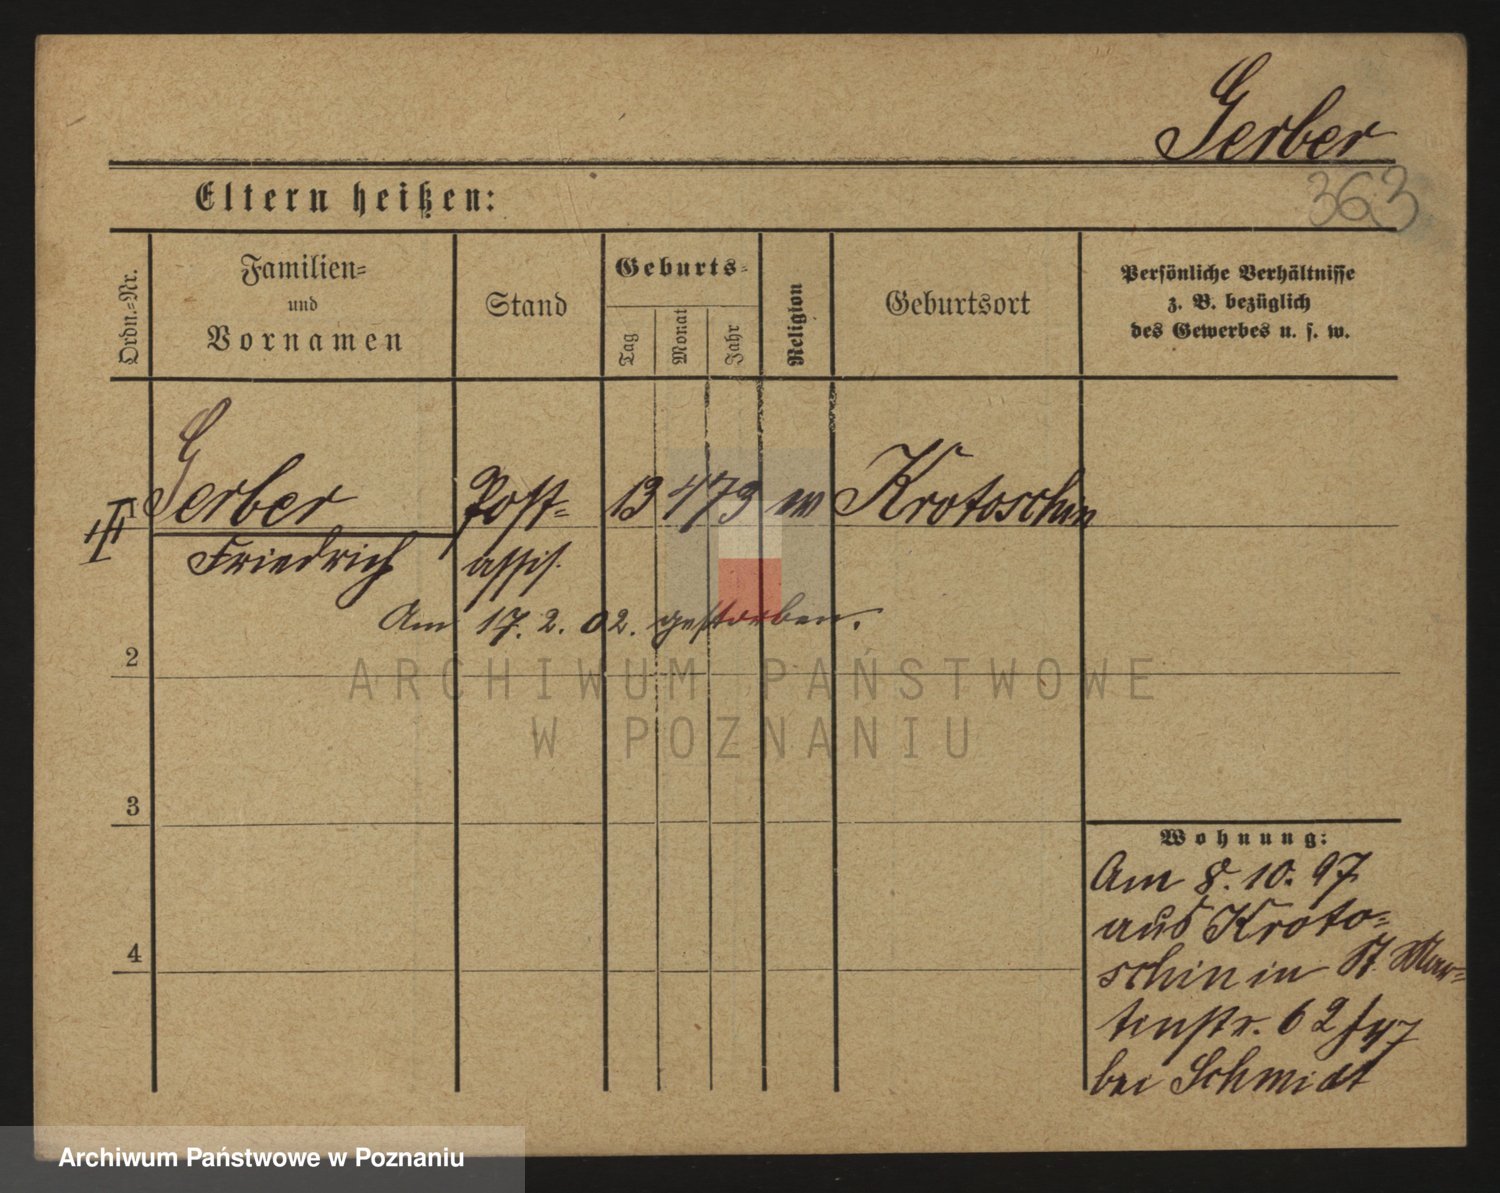 Gerber
363
Eltern heißen:
Ordn.-Nr.
Familien-
und
Vornamen
Stand
Geburts-
Tag
Monat
Jahr
Religion
Geburtsort
Persönliche Verhältnisse
z. B. bezüglich
des Gewerbes u. s. w.
Gerber Post- 13 4 73 Krotoschin
Friedrich assis.
Am 17. 2. 02. gestorben.
2
3
4
Wohnung:
Am 8. 10. 97
aus Kroto-
schin in St. Mar-
tinstr. 62
bei Schmidt
ARCHIWUM PAŃSTWOWE
W POZNANIU
Archiwum Państwowe w Poznaniu